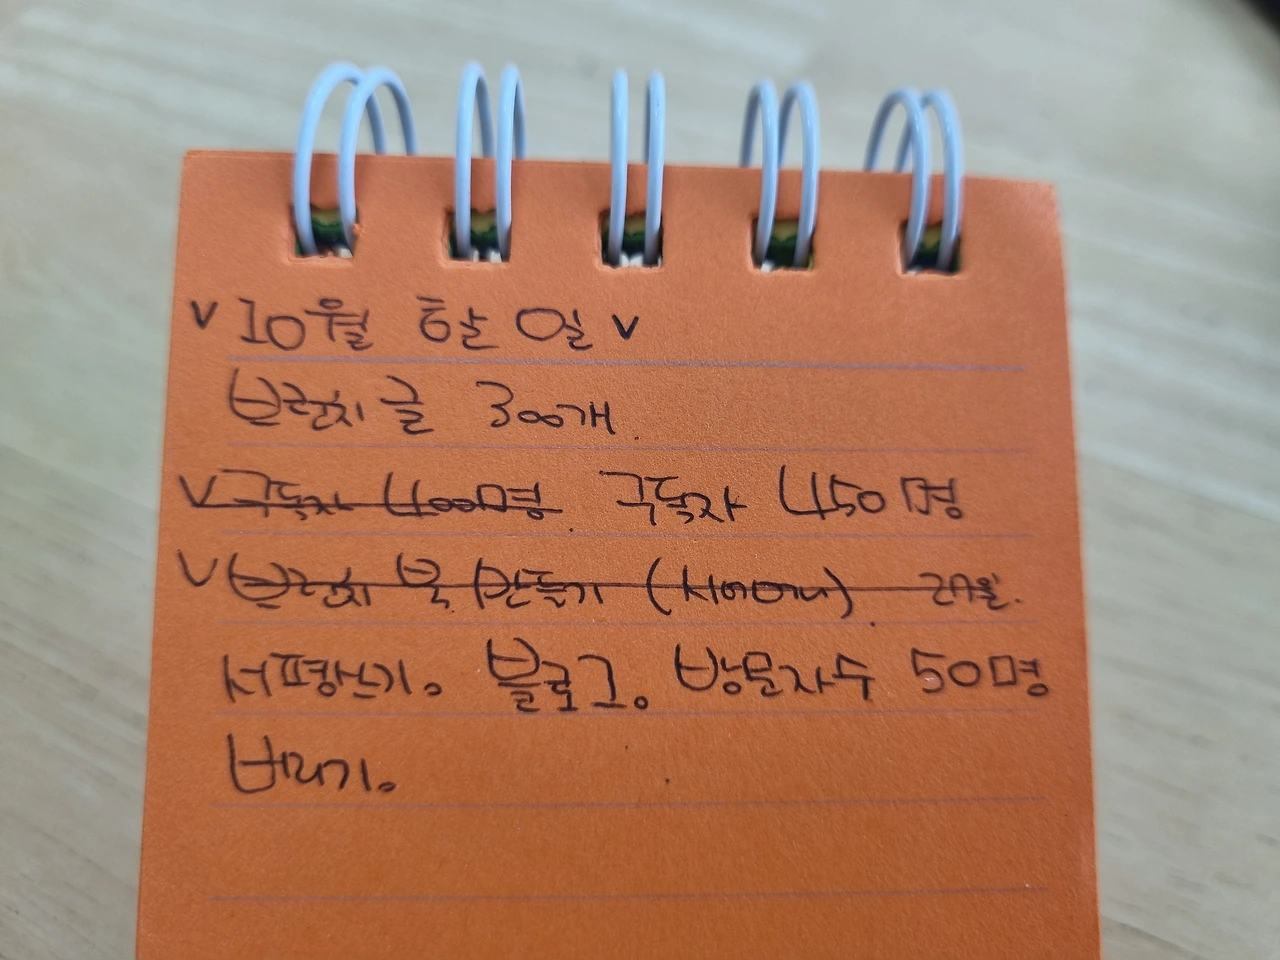 v 10월 할 일 v
브런치 글 300개.
v 구독자 400명. 구독자 450명
v 브런치 북 만들기 (시어머니)
서평쓰기. 블로그. 방문자수 50명
버리기.